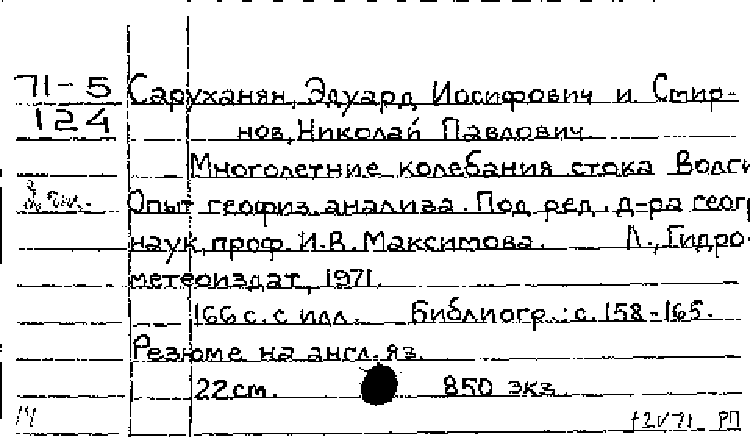 71-5 Саруханян, Эдуард Иосифович и Смир-
124 нов, Николай Павлович
Многолетние колебания стока Волги
Опыт геофиз. анализа. Под ред. д-ра геогр
наук, проф. И.В. Максимова. Л., Гидро-
метеоиздат, 1971.
166 с. с илл. Библиогр.: с. 158-165.
Резюме на англ. яз.
22 см. 850 экз
14 РП